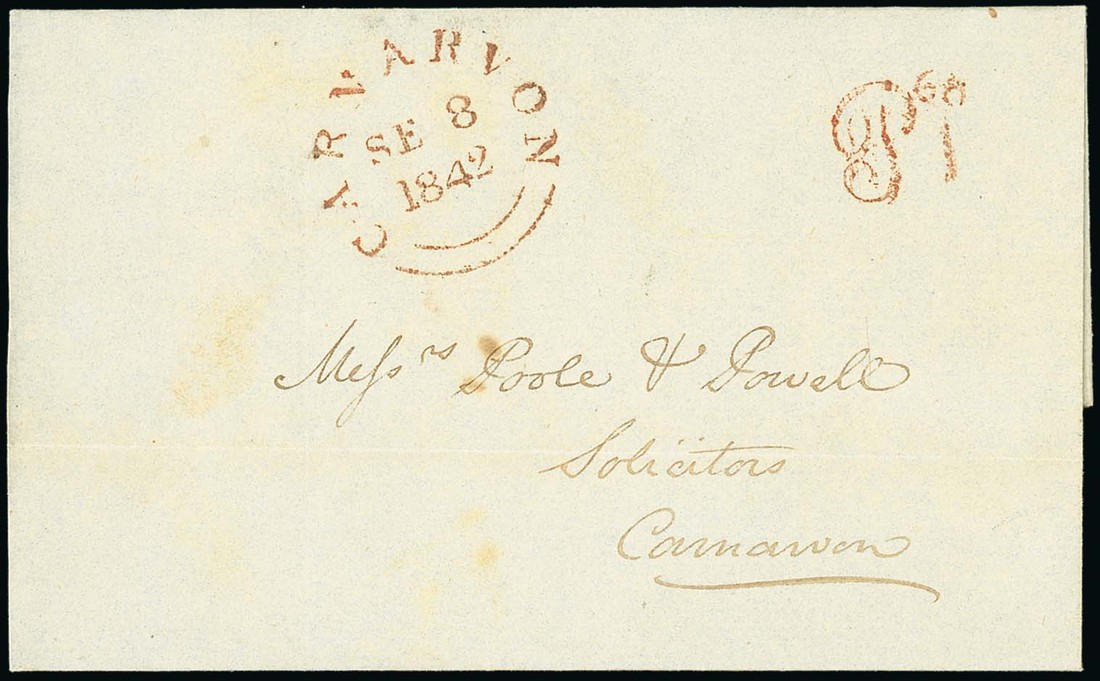 CARNARVON
SE 8
1842
Pd 1
Messrs Poole & Powell
Solicitors
Carnarvon